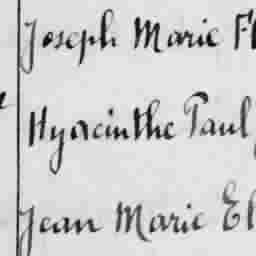 Joseph Marie
Hyacinthe Paul
Jean Marie